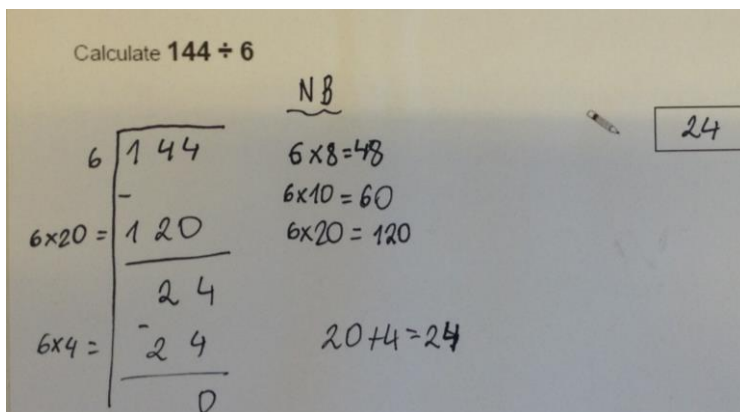 Calculate 144 ÷ 6
NB
6 144
-
6x20 = 120
24
6x4 = - 24
0
6x8=48
6x10=60
6x20=120
20+4=24
24